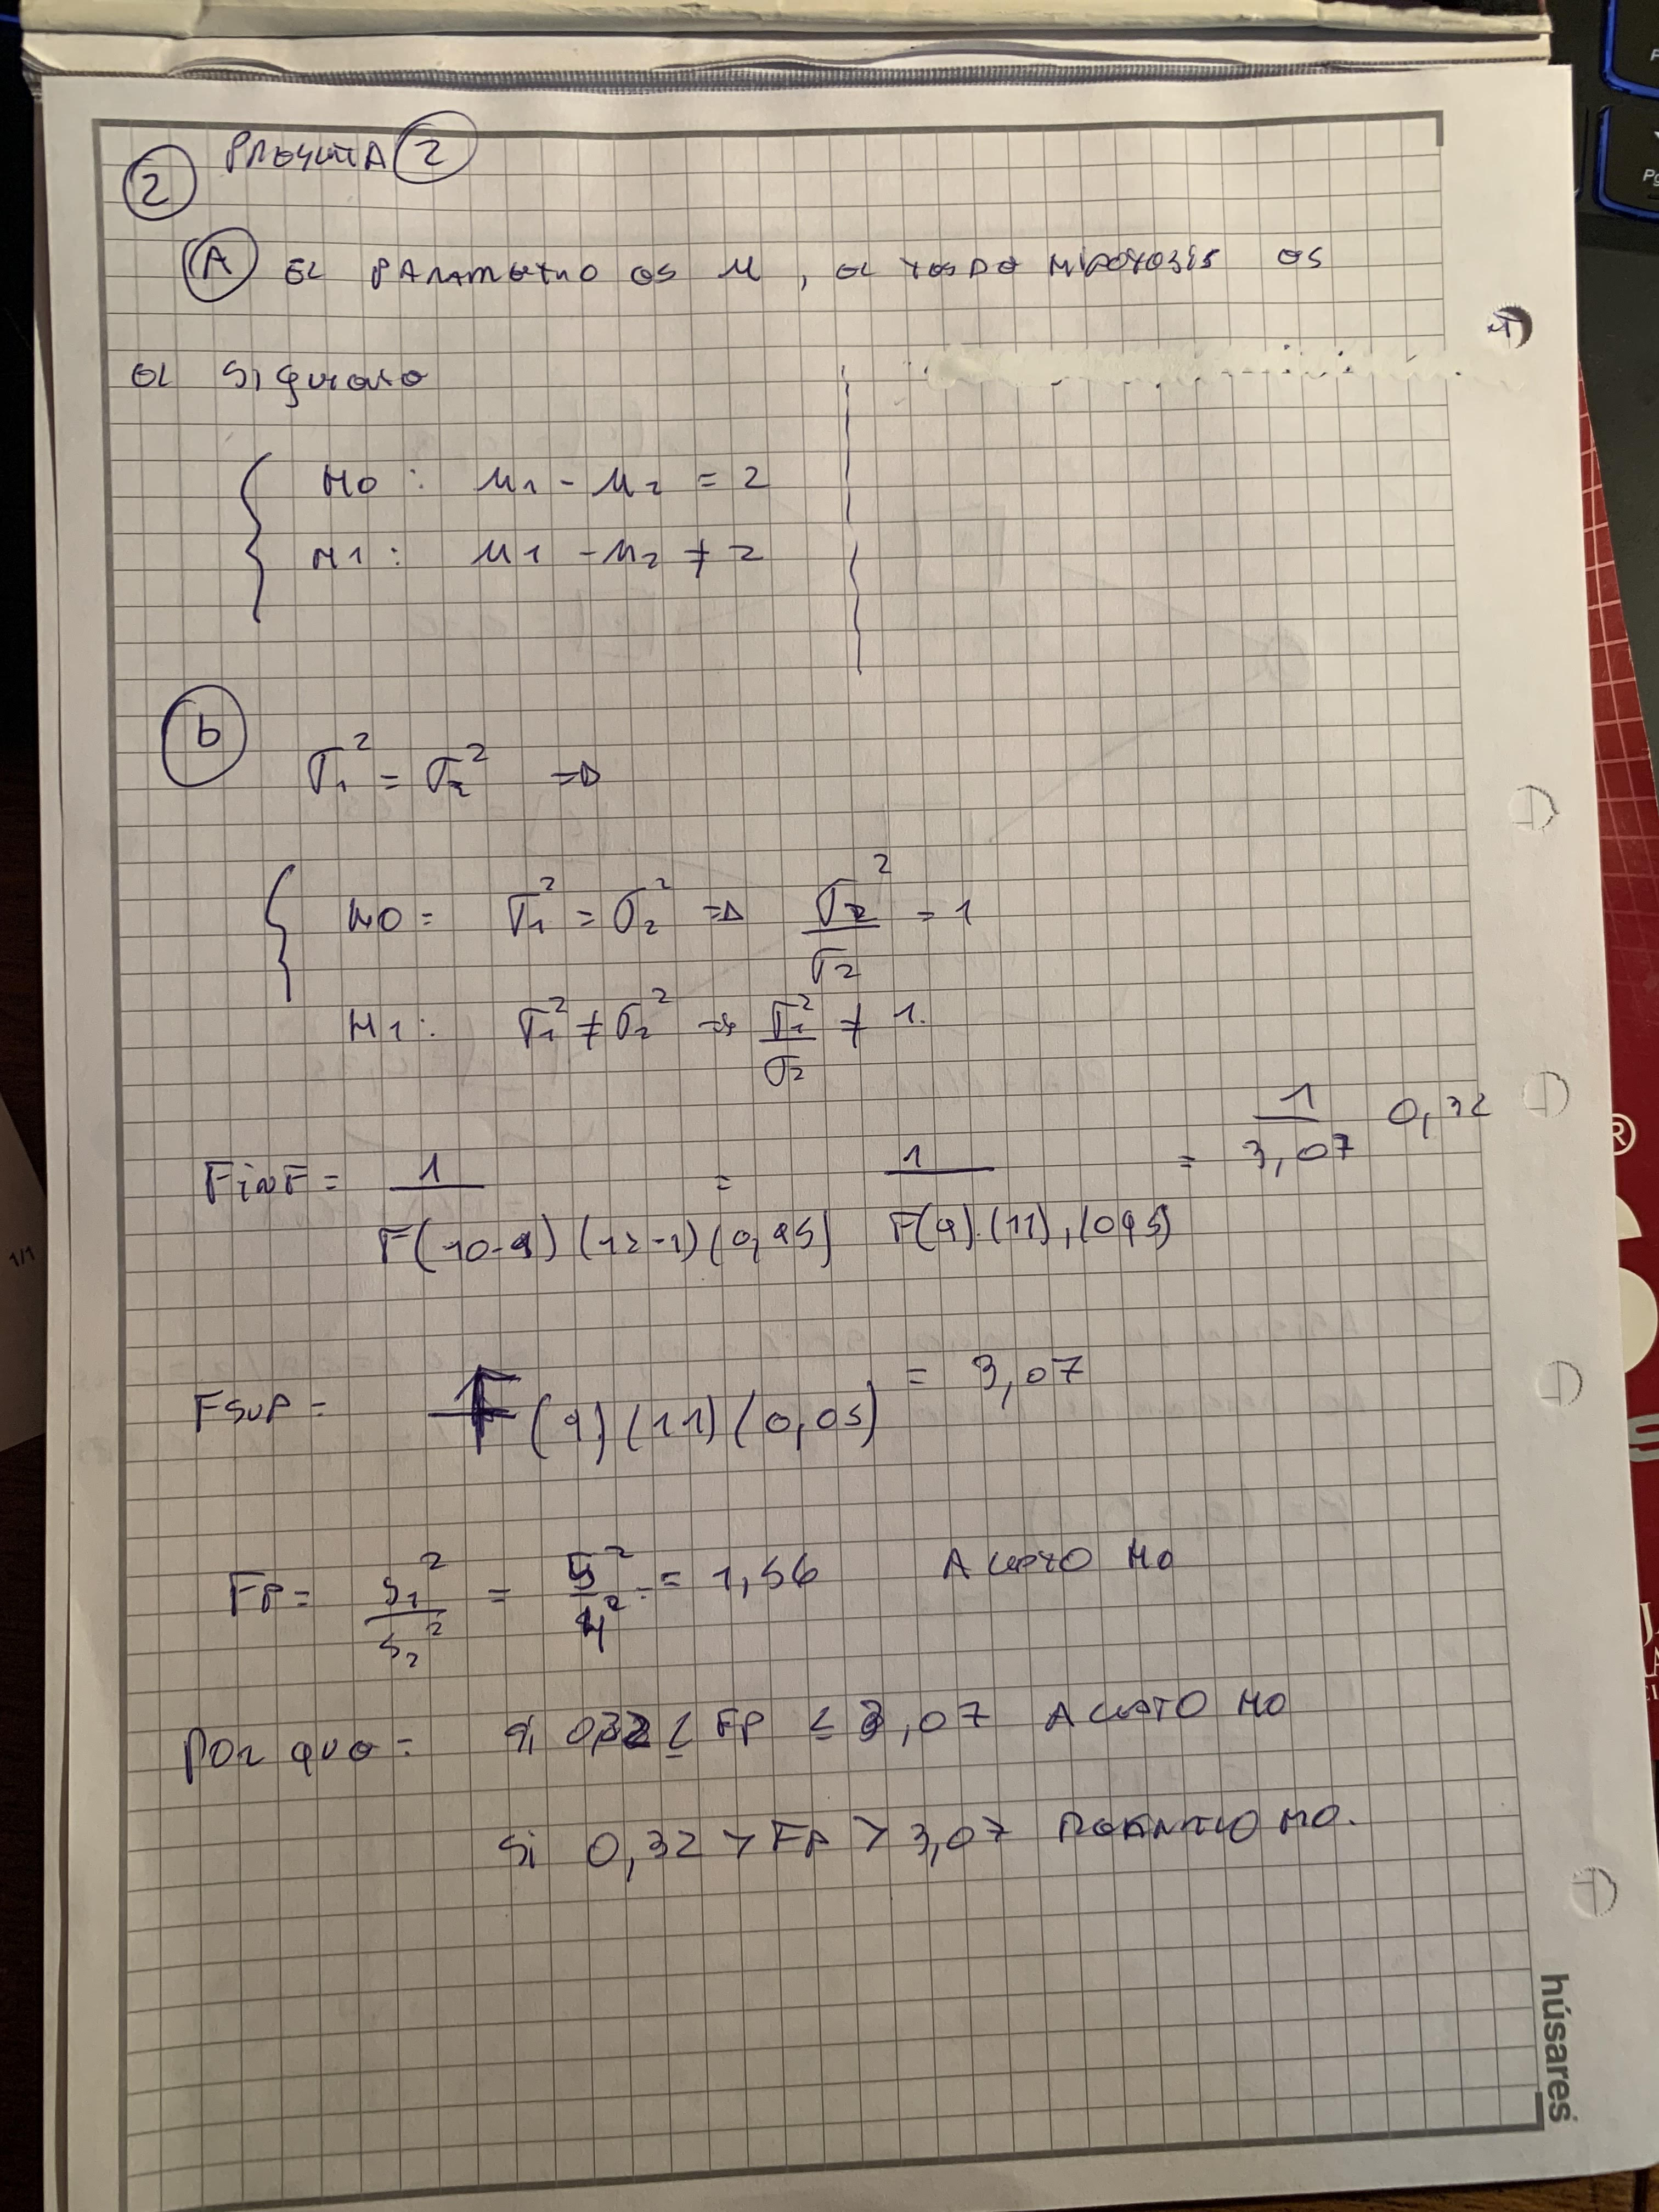 PREGUNTA 2
2
A EL PARAMETRO ES μ, EL TEST DE HIPOTESIS ES
EL SIGUIENTE
H0: μ1 - μ2 = 2
H1: μ1 - μ2 ≠ 2
b
σ1² = σ2² =>
H0= σ1² = σ2² => σ2²/σ2 = 1
H1: σ1² ≠ σ2² → σ1²/σ2 ≠ 1.
Finf = 1/F(10-1)(12-1)(0,95) = 1/F(9).(11),(0,95) = 1/3,07 0,32
FSUP = F(9)(11)(0,05) = 3,07
FP= S1²/S2² = 5²/4² = 1,56 ACEPTO H0
POR QUE = Si 0,32 ≤ FP ≤ 3,07 ACEPTO H0
Si 0,32 > FP > 3,07 RECHAZO H0.
húsares
1/1
®